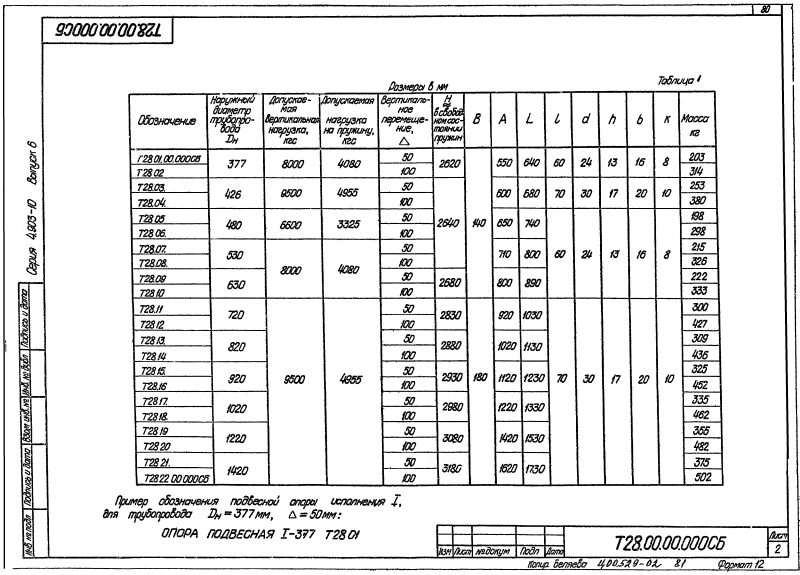 80
Т28.00.00.000СБ
Серия 4.903-10 Выпуск 6
Размеры в мм
Таблица 1
Обозначение | Наружный диаметр трубопровода Dн | Допускаемая вертикальная нагрузка, кгс | Допускаемая нагрузка на пружину, кгс | Вертикальное перемещение, △ | H в свободном состоянии пружин | B | A | L | l | d | h | b | к | Масса кг
Т28.01.00.000СБ | 377 | 8000 | 4080 | 50 | 2620 | 140 | 550 | 640 | 60 | 24 | 13 | 16 | 8 | 203
Т28.02 | 100 | 314
Т28.03. | 426 | 9500 | 4955 | 50 | 2640 | 600 | 680 | 70 | 30 | 17 | 20 | 10 | 253
Т28.04. | 100 | 380
Т28.05 | 480 | 6600 | 3325 | 50 | 650 | 740 | 60 | 24 | 13 | 16 | 8 | 198
Т28.06. | 100 | 298
Т28.07. | 530 | 8000 | 4080 | 50 | 710 | 800 | 215
Т28.08. | 100 | 326
Т28.09 | 630 | 50 | 2680 | 800 | 890 | 222
Т28.10 | 100 | 333
Т28.11 | 720 | 9500 | 4955 | 50 | 2830 | 180 | 920 | 1030 | 70 | 30 | 17 | 20 | 10 | 300
Т28.12 | 100 | 427
Т28.13. | 820 | 50 | 2880 | 1020 | 1130 | 309
Т28.14 | 100 | 436
Т28.15. | 920 | 50 | 2930 | 1120 | 1230 | 325
Т28.16 | 100 | 452
Т28.17. | 1020 | 50 | 2980 | 1220 | 1330 | 335
Т28.18. | 100 | 462
Т28.19 | 1220 | 50 | 3080 | 1420 | 1530 | 355
Т28.20 | 100 | 482
Т28.21. | 1420 | 50 | 3180 | 1620 | 1730 | 375
Т28.22.00.000СБ | 100 | 502
Пример обозначения подвесной опоры исполнения I,
для трубопровода Dн=377мм, △=50мм:
ОПОРА ПОДВЕСНАЯ I-377 Т28.01
Инв №подл Подпись и дата Взам инв.№ Инв.№ дубл Подпись и дата
Изм Лист №докум Подп Дата
Т28.00.00.000СБ
Лист
2
Копир. Беляева Ц.00529-02 81 Формат 12